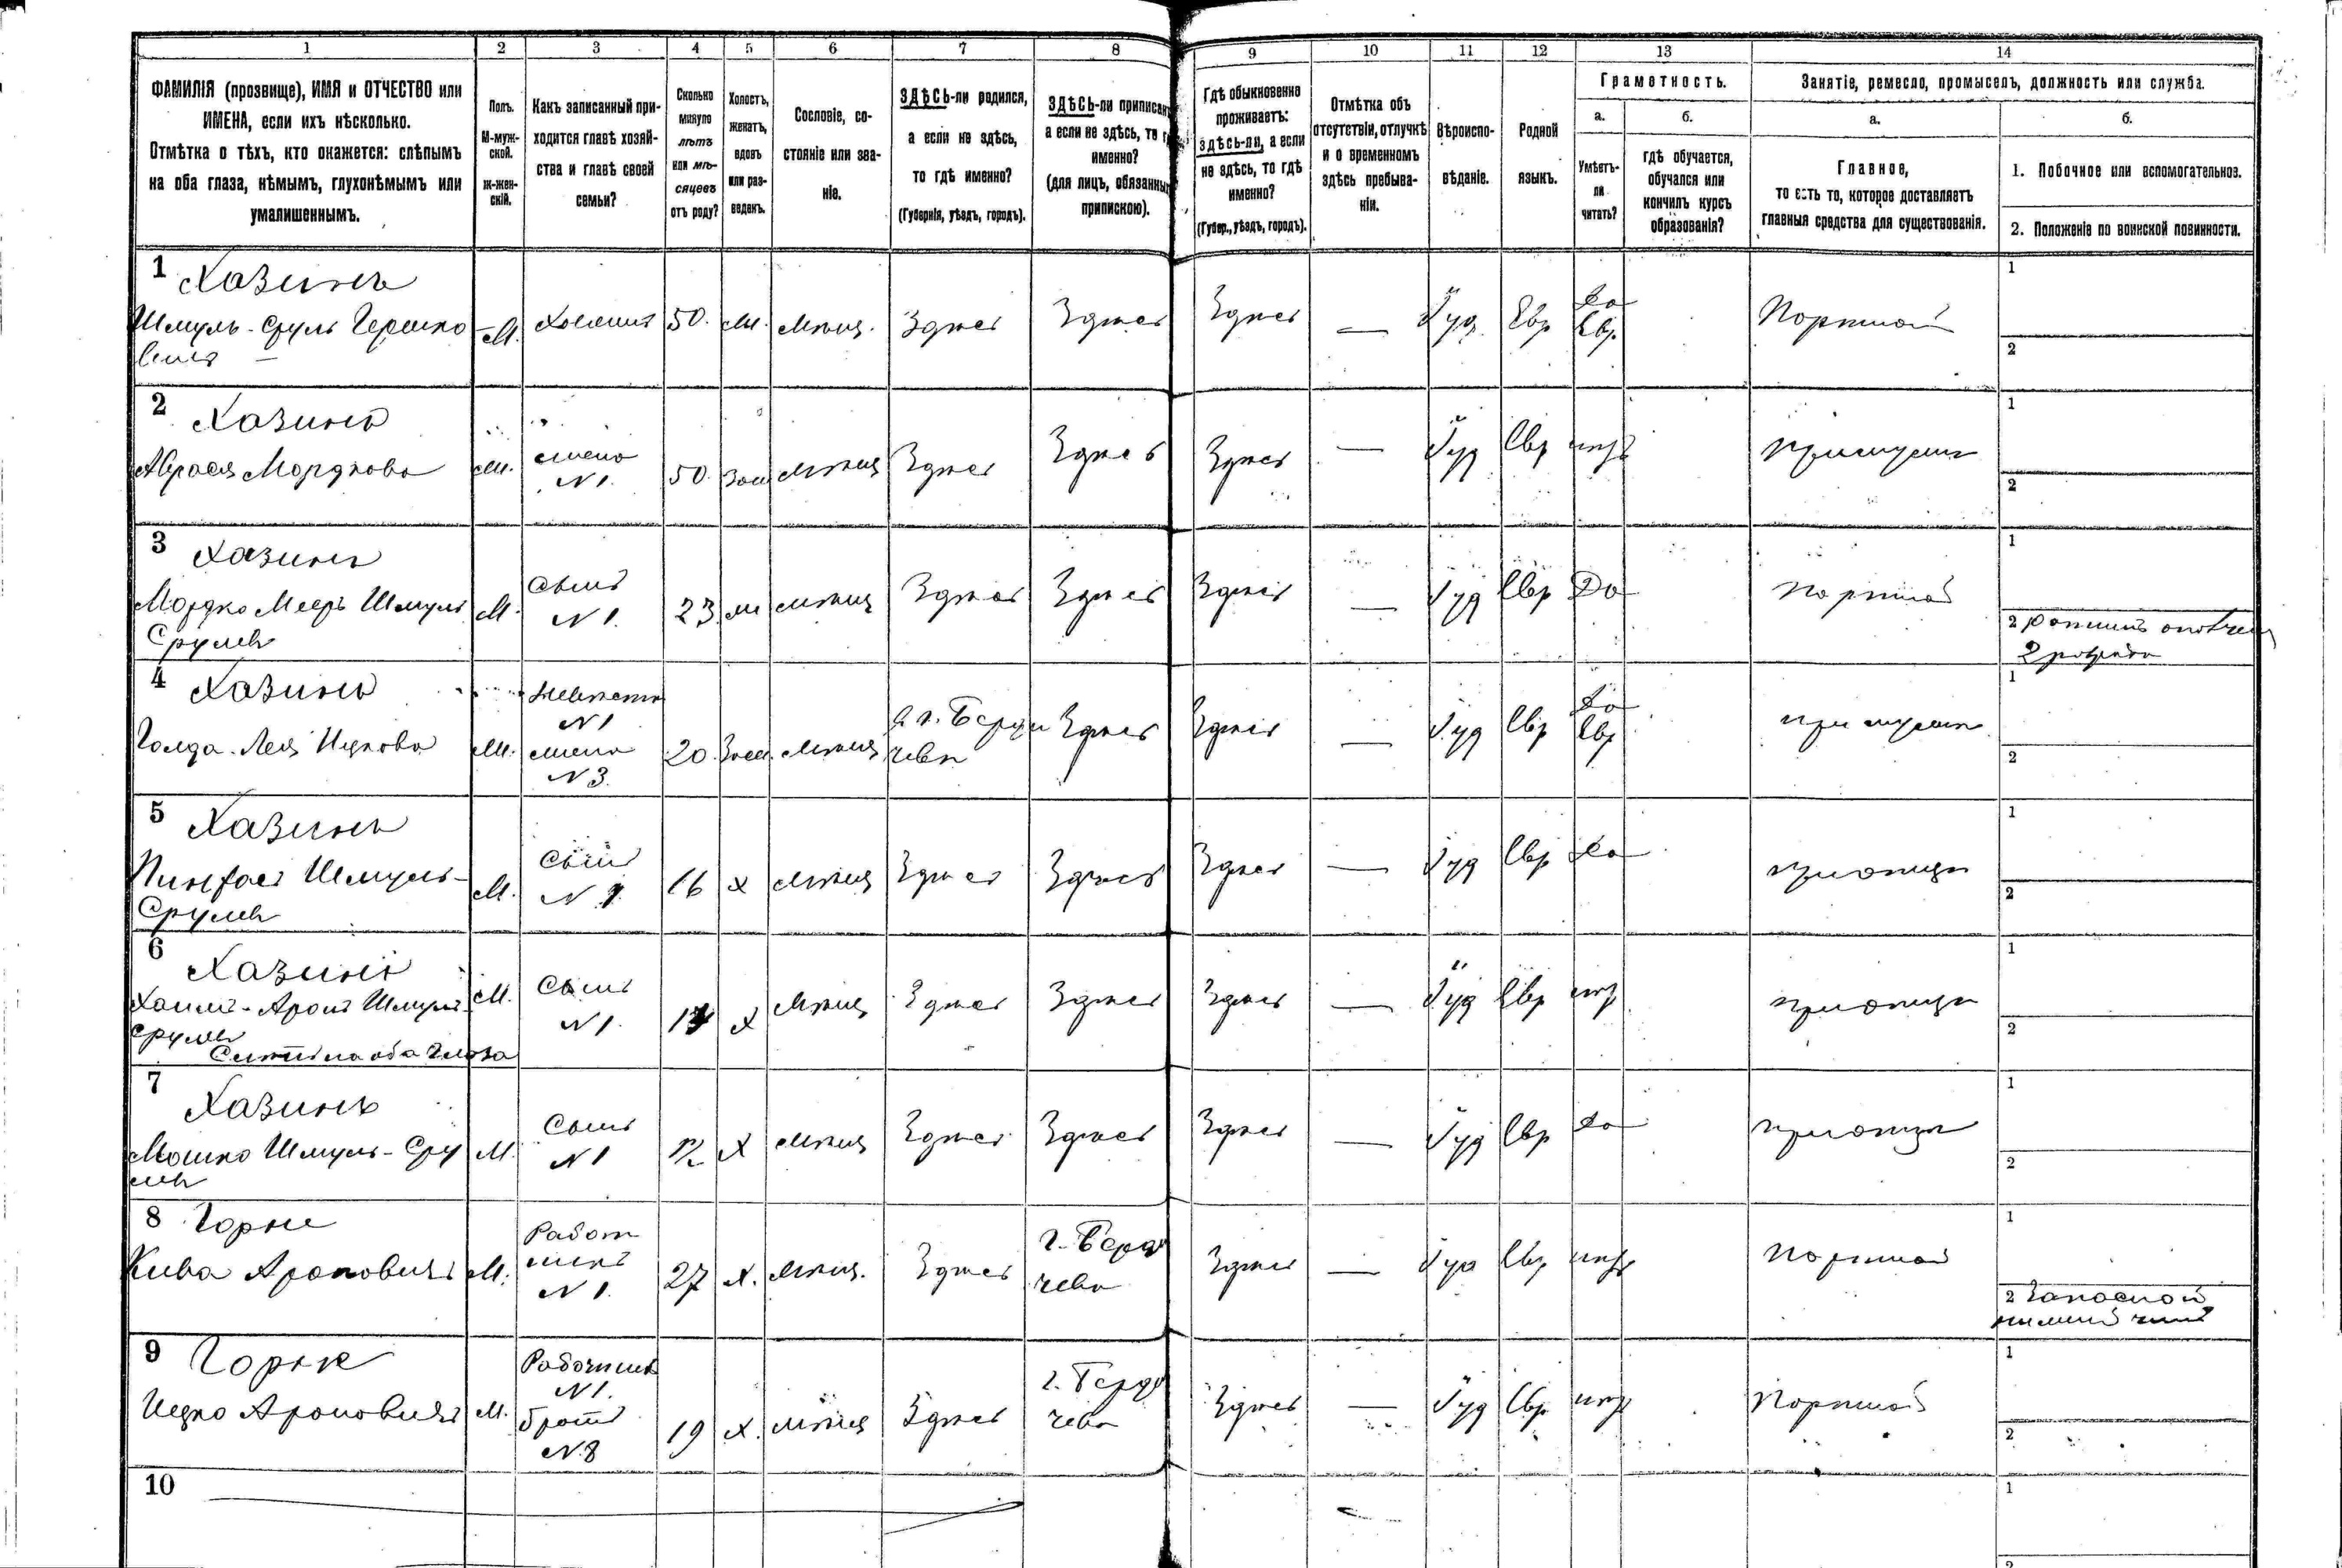 1 2 3 4 5 6 7 8 9 10 11 12 13 14
ФАМИЛІЯ (прозвище), ИМЯ и ОТЧЕСТВО или
ИМЕНА, если ихъ нѣсколько.
Отмѣтка о тѣхъ, кто окажется: слѣпымъ
на оба глаза, нѣмымъ, глухонѣмымъ или
умалишеннымъ.
Полъ.
М-муж-
ской.
ж-жен-
скій.
Какъ записанный при-
ходится главѣ хозяй-
ства и главѣ своей
семьи?
Сколько
минуло
лѣтъ
или мѣ-
сяцевъ
отъ роду?
Холостъ,
женатъ,
вдовъ
или раз-
веденъ.
Сословіе, со-
стояніе или зва-
ніе.
ЗДѢСЬ-ли родился,
а если не здѣсь,
то гдѣ именно?
(Губернія, уѣздъ, городъ).
ЗДѢСЬ-ли приписанъ
а если не здѣсь, то г
именно?
(для лицъ, обязанны
припискою).
Гдѣ обыкновенно
проживаетъ:
здѣсь-ли, а если
не здѣсь, то гдѣ
именно?
(Губер., уѣздъ, городъ).
Отмѣтка объ
отсутствіи, отлучкѣ
и о временномъ
здѣсь пребыва-
ніи.
Вѣроиспо-
вѣданіе.
Родной
языкъ.
Грамотность.
а.
Умѣетъ-
ли
читать?
б.
гдѣ обучается,
обучался или
кончилъ курсъ
образованія?
Занятіе, ремесло, промыселъ, должность или служба.
а.
Главное,
то есть то, которое доставляетъ
главныя средства для существованія.
б.
1. Побочное или вспомогательное.
2. Положеніе по воинской повинности.
1 Хазинъ
Шмуль-Сруль Гершко
вичъ
М. Хозяинъ 50. Ж. Мѣщ. Здѣсь Здѣсь Здѣсь — Іуд Евр Да
Евр. Портной
1
2
2 Хазинъ
Мордкова
жена
N 1. 50. Зам мѣщ Здѣсь Здѣсь Здѣсь — Іуд Евр нѣтъ при мужѣ
1
2
3 Хазинъ
Мордко Мееръ Шмуль
Срулев
М. Сынъ
N 1. 23 ж мѣщ Здѣсь Здѣсь Здѣсь — Іуд Евр Да портной
1
2 ратникъ ополчен
2 разряда
4 Хазинъ
Голда-Лея Ицкова
Невѣстка
N 1
жена
N 3. 20. Зам. мѣщ г. Берди
чевъ Здѣсь Здѣсь — Іуд Евр Да
Евр при мужѣ
1
2
5 Хазинъ
Пинхасъ Шмуль-
Срулев
М. Сынъ
N 1 16 Х мѣщ Здѣсь Здѣсь Здѣсь — Іуд Евр Да при отцѣ
1
2
6 Хазинъ
Хаимъ-Аронъ Шмуль
Срулев
Слѣпой на оба глаза
М. Сынъ
N 1. Х мѣщ Здѣсь Здѣсь Здѣсь — Іуд Евр нѣтъ при отцѣ
1
2
7 Хазинъ
Мошко Шмуль-Сру
лев
М. Сынъ
N 1 12 Х мѣщ Здѣсь Здѣсь Здѣсь — Іуд Евр Да при отцѣ
1
2
8 Горне
Кива Ароновичъ
М. Работ
никъ
N 1. 27 Х. мѣщ. Здѣсь г. Берди
чевъ Здѣсь — Іуд Евр нѣтъ портной
1
2 Запасной
нижній чинъ
9 Горне
Ицко Ароновичъ
М. Работникъ
N 1.
братъ
N 8 19 Х. мѣщ Здѣсь г. Берди
чевъ Здѣсь — Іуд Евр нѣтъ Портной
1
2
10
1
2